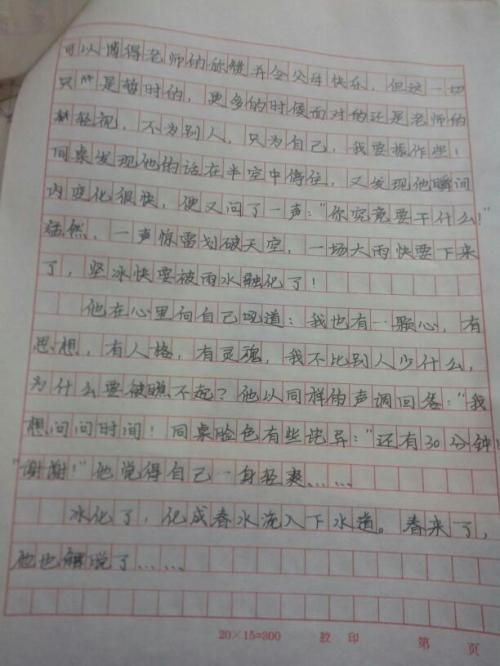 可以博得老师的称赞并令父母快乐，但这一切
只是暂时的，更多的时候面对的还是老师的
轻视，不为别人，只为自己，我要振作些！
同桌发现他的话在半空中停住，又发现他瞬间
内变化很快，便又问了一声："你究竟要干什么！"
猛然，一声惊雷划破天空，一场大雨快要下来
了，坚冰快要被雨水融化了！
他在心里向自己喊道：我也有一颗心，有
思想，有人格，有灵魂，我不比别人少什么，
为什么要被瞧不起？他以同样的声调回答："我
想问问时间！同桌脸色有些诧异："还有30分钟！
"谢谢！"他觉得自己一身轻爽……
冰化了，化成春水流入下水道。春来了，
他也解脱了……
20×15=300 教 印 第 页